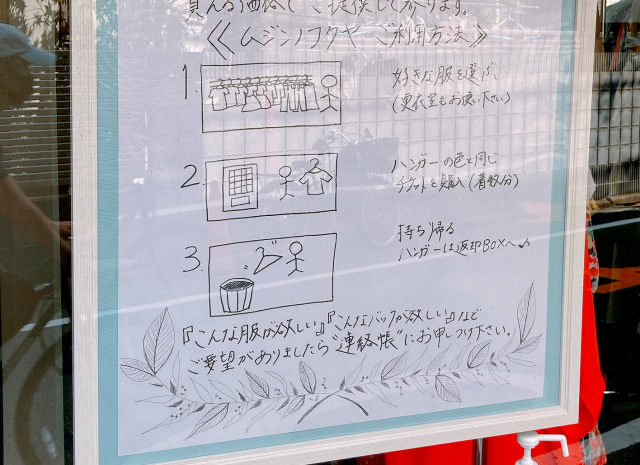 買える価格でご提供しております。
≪ムジンノフクヤ ご利用方法≫
1.
好きな服を選ぶ
(更衣室もお使い下さい)
2.
ハンガーの色と同じ
チケットを購入(着数分)
3.
持ち帰る
ハンガーは返却BOXへ♪
『こんな服が欲しい』『こんなバックが欲しい』など
ご要望がありましたら"連絡帳"にお申しつけ下さい。